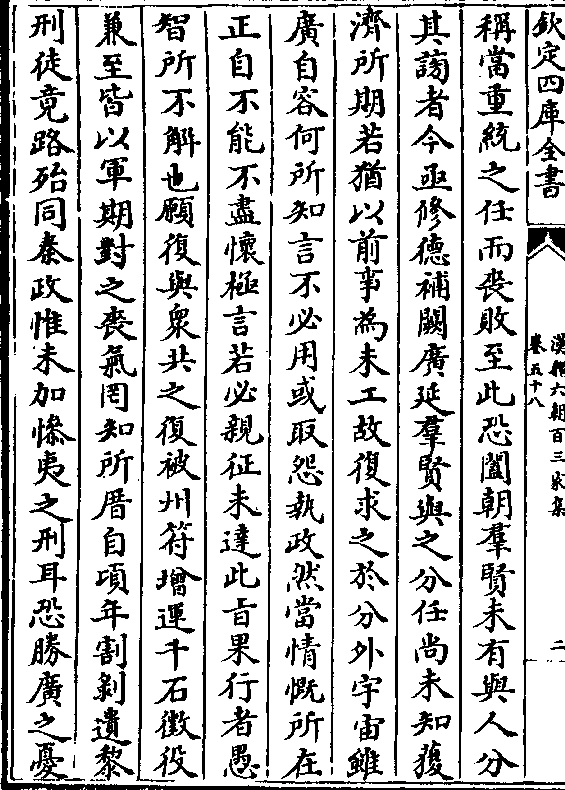 欽定四庫全書
漢魏六朝百三家集
卷五十八
二
稱當重統之任而喪敗至此恐闔朝羣賢未有與人分
其謗者今亟修德補闕廣延羣賢與之分任尚未知獲
濟所期若猶以前事為未工故復求之於分外宇宙雖
廣自容何所知言不必用或取怨執政然當情慨所在
正自不能不盡懷極言若必親征未達此旨果行者愚
智所不解也願復與衆共之復被州符增運千石徵役
兼至皆以軍期對之喪氣罔知所厝自頃年割剝遺黎
刑徒竟路殆同秦政惟未加慘夷之刑耳恐勝廣之憂